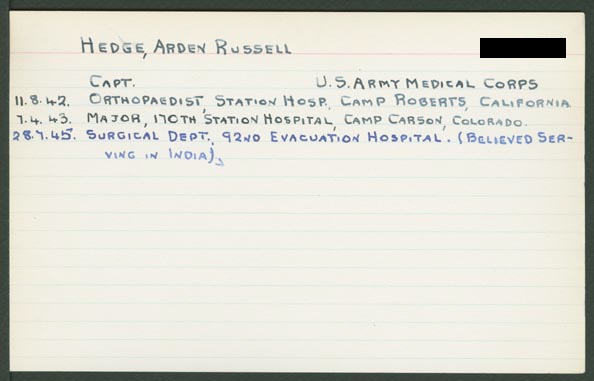 HEDGE, ARDEN RUSSELL
CAPT. U.S. ARMY MEDICAL CORPS
11.8.42. ORTHOPAEDIST, STATION HOSP., CAMP ROBERTS, CALIFORNIA
7.4.43. MAJOR, 170TH STATION HOSPITAL, CAMP CARSON, COLORADO.
28.7.45. SURGICAL DEPT., 92ND EVACUATION HOSPITAL. (BELIEVED SER-
VING IN INDIA).